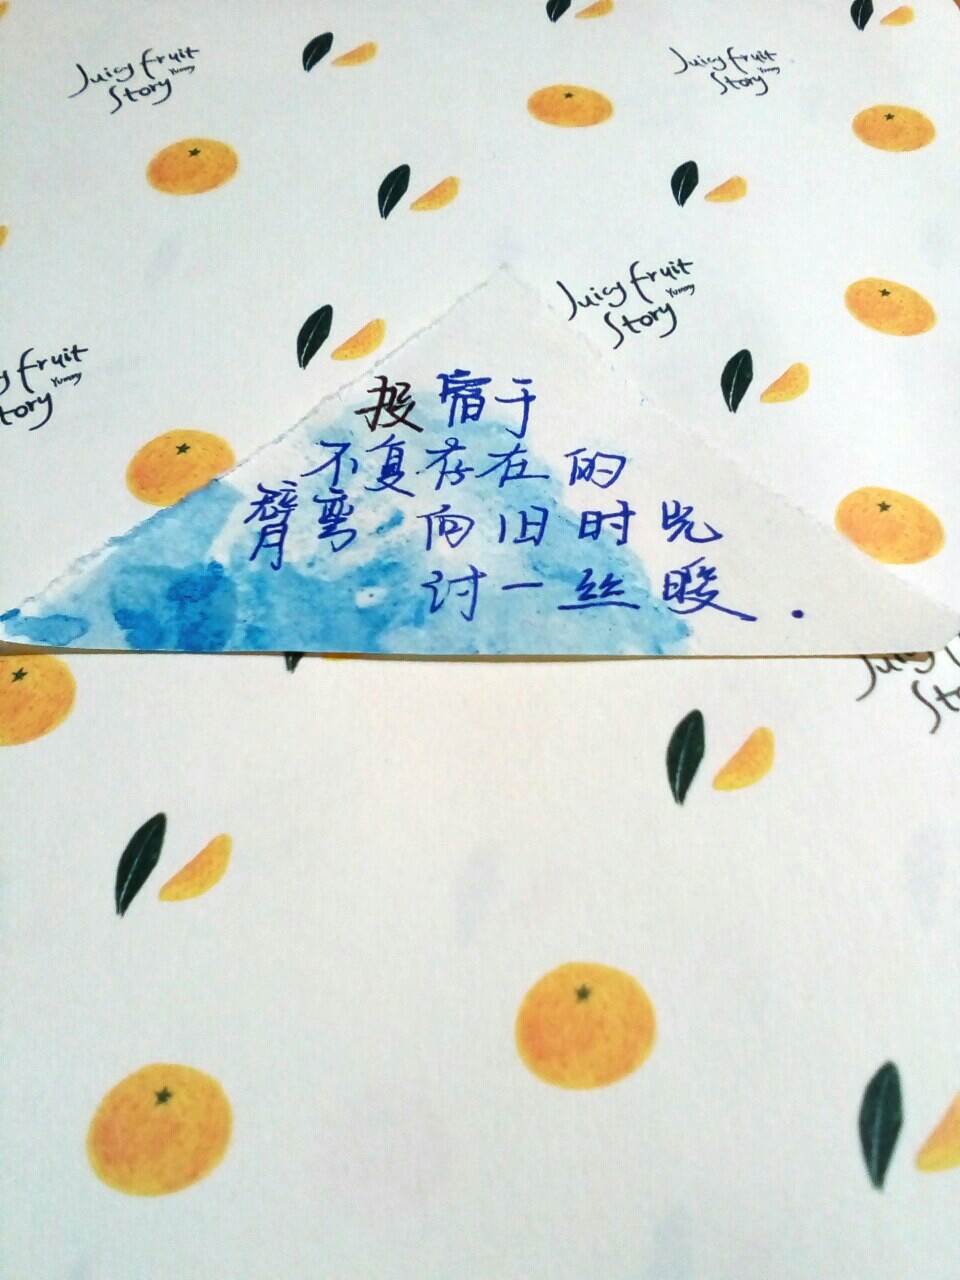 Juicy fruit
Yummy
Story
Juicy fruit
Yummy
Story
Juicy fruit
Yummy
Story
y fruit
Yummy
tory
投宿于
不复存在的
臂弯 向旧时光
讨一丝暖.
Juicy f
Sto